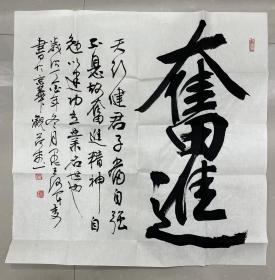 奮進
天行健君子當自强
不息故奮進精神自
勉以建功立業名世也
歲次丁酉年冬月
書於京華